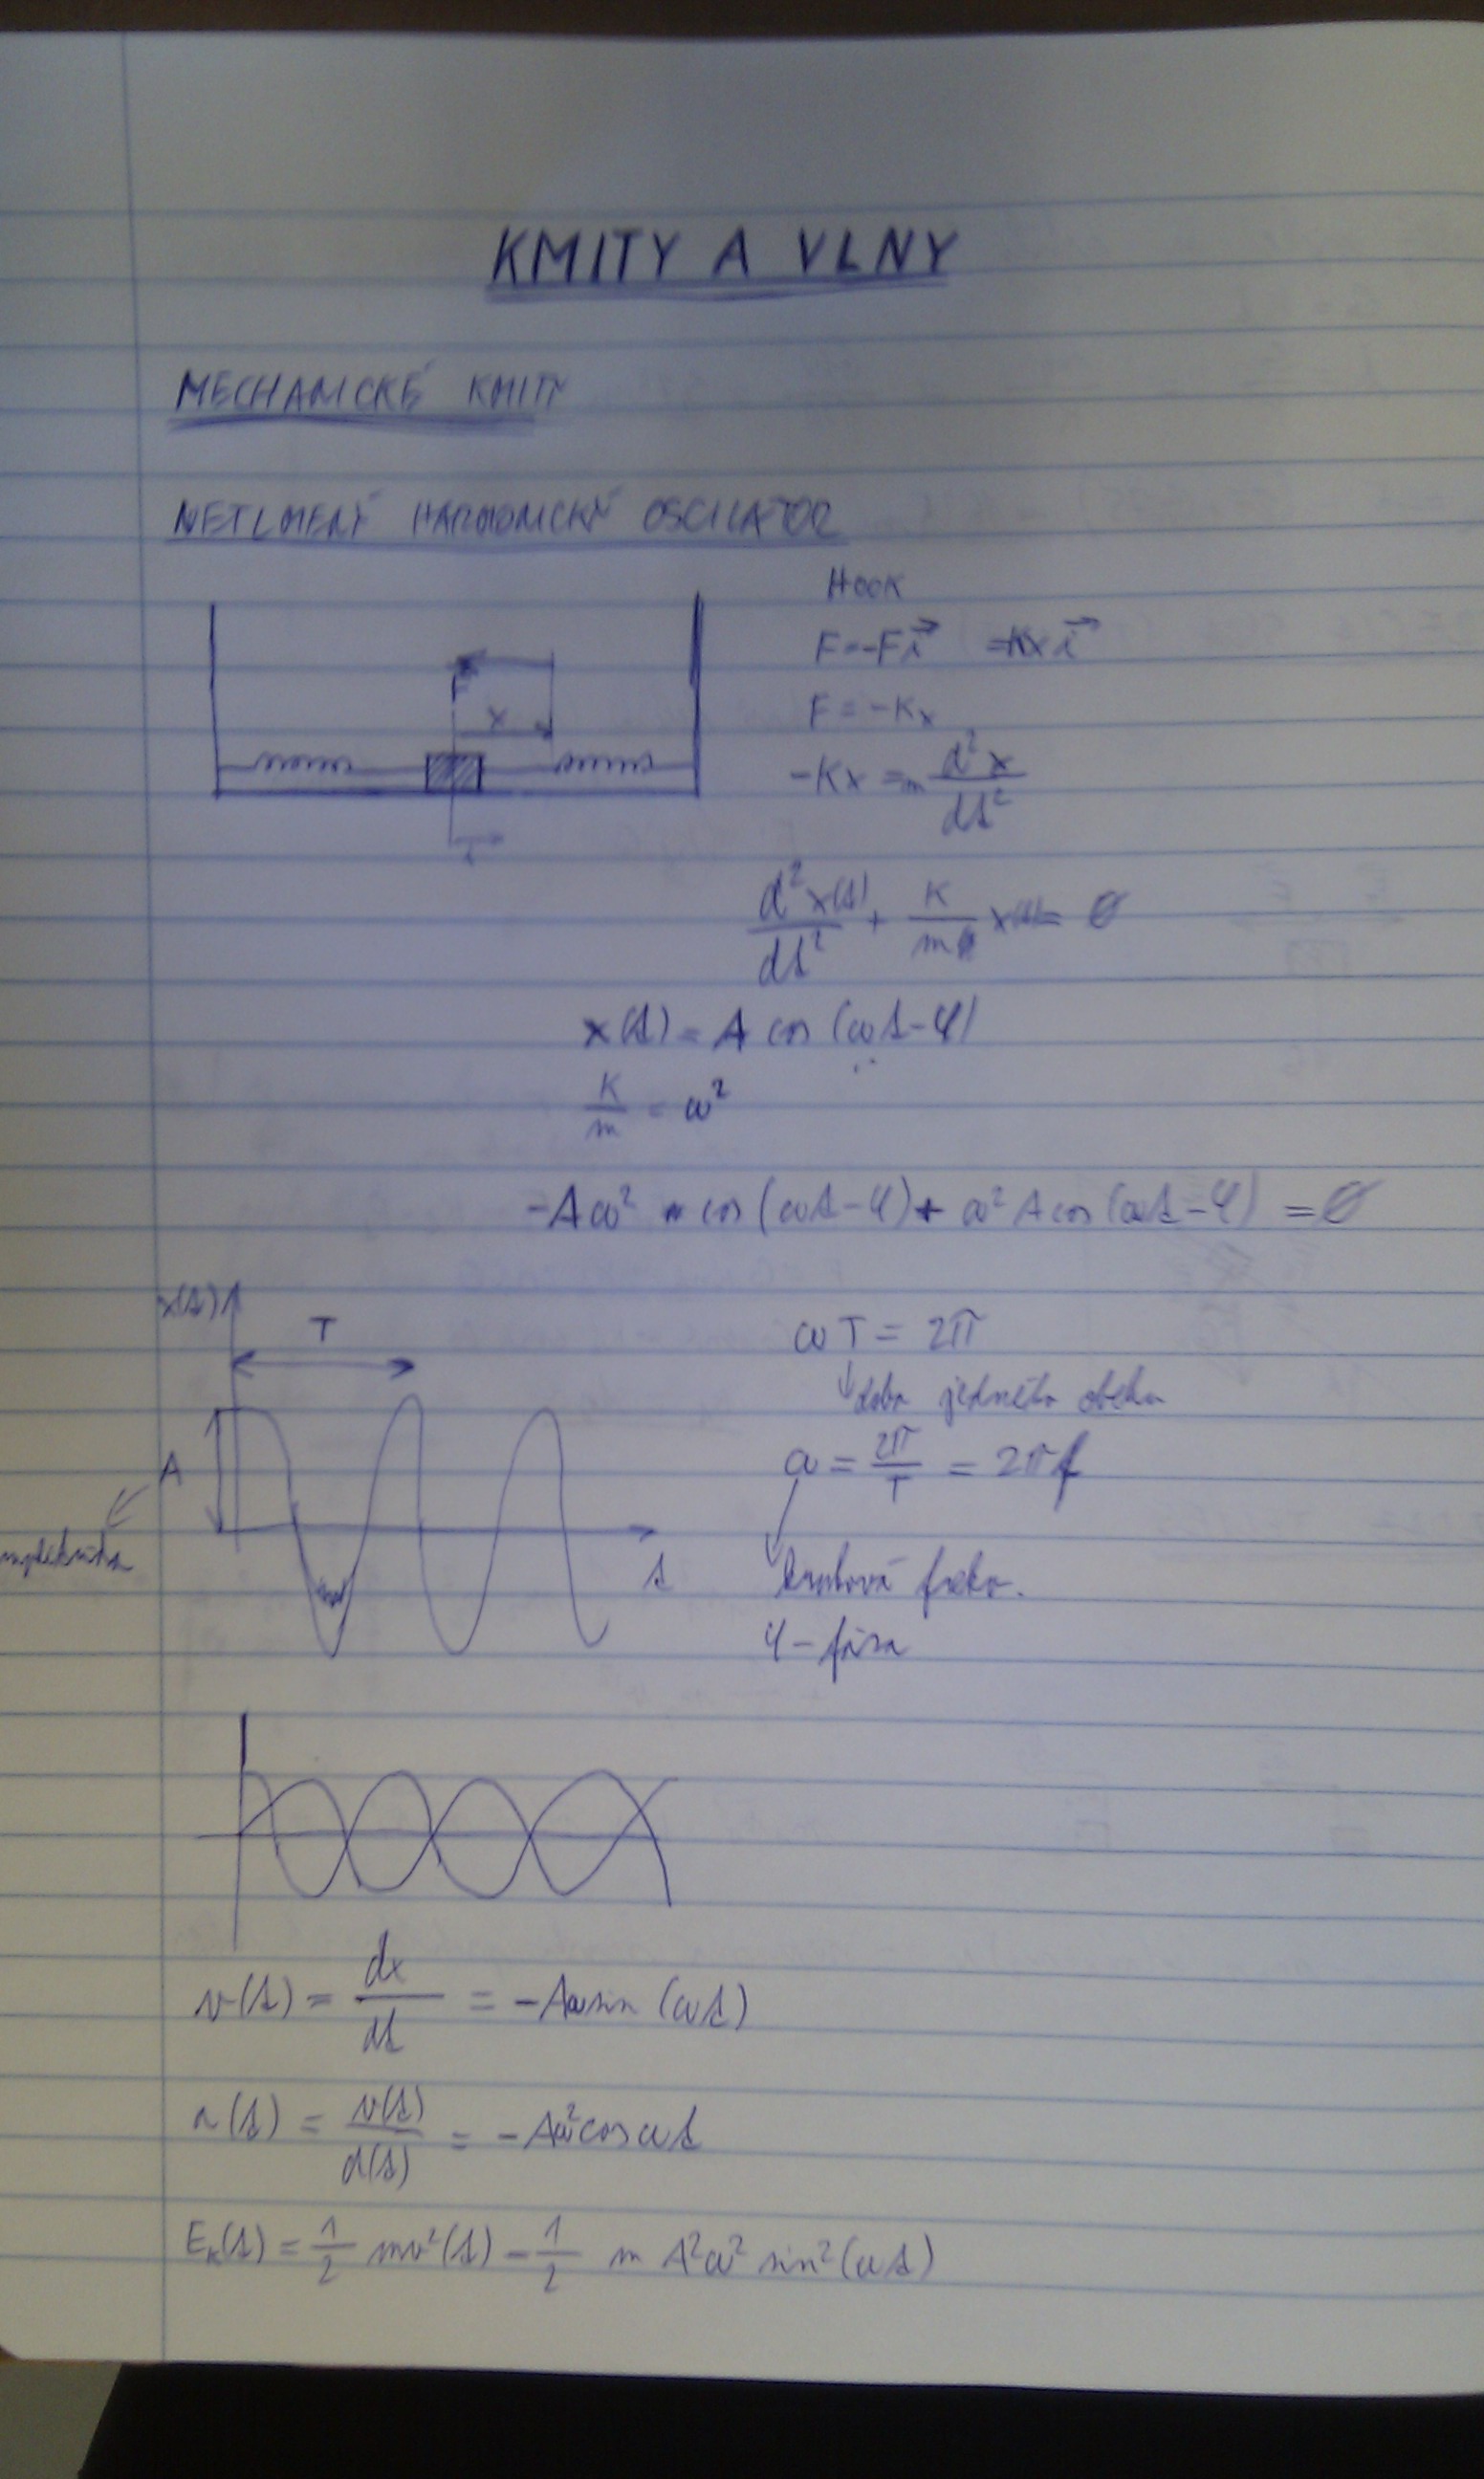 KMITY A VLNY
MECHANICKÉ KMITY
NETLMENÝ HARMONICKÝ OSCILATOR
HOOK
F=-F i⃗ =-Kx i⃗
F = -Kx
x
-Kx = m d²x/dt²
i
d²x(t)/dt² + K/m x(t) = 0
x(t) = A cos (ωt-φ)
K/m = ω²
-Aω² cos (ωt-φ) + ω² A cos (ωt-φ) = 0
x(t)
T
ωT = 2π
doba jedneho obehu
A
ω = 2π/T = 2πf
amplituda
t
kruhová frekv.
φ - fáza
v(t) = dx/dt = -Aω sin (ωt)
a(t) = v(t)/d(t) = -Aω² cos ωt
Eₖ(t) = 1/2 mv²(t) = 1/2 m A²ω² sin² (ωt)